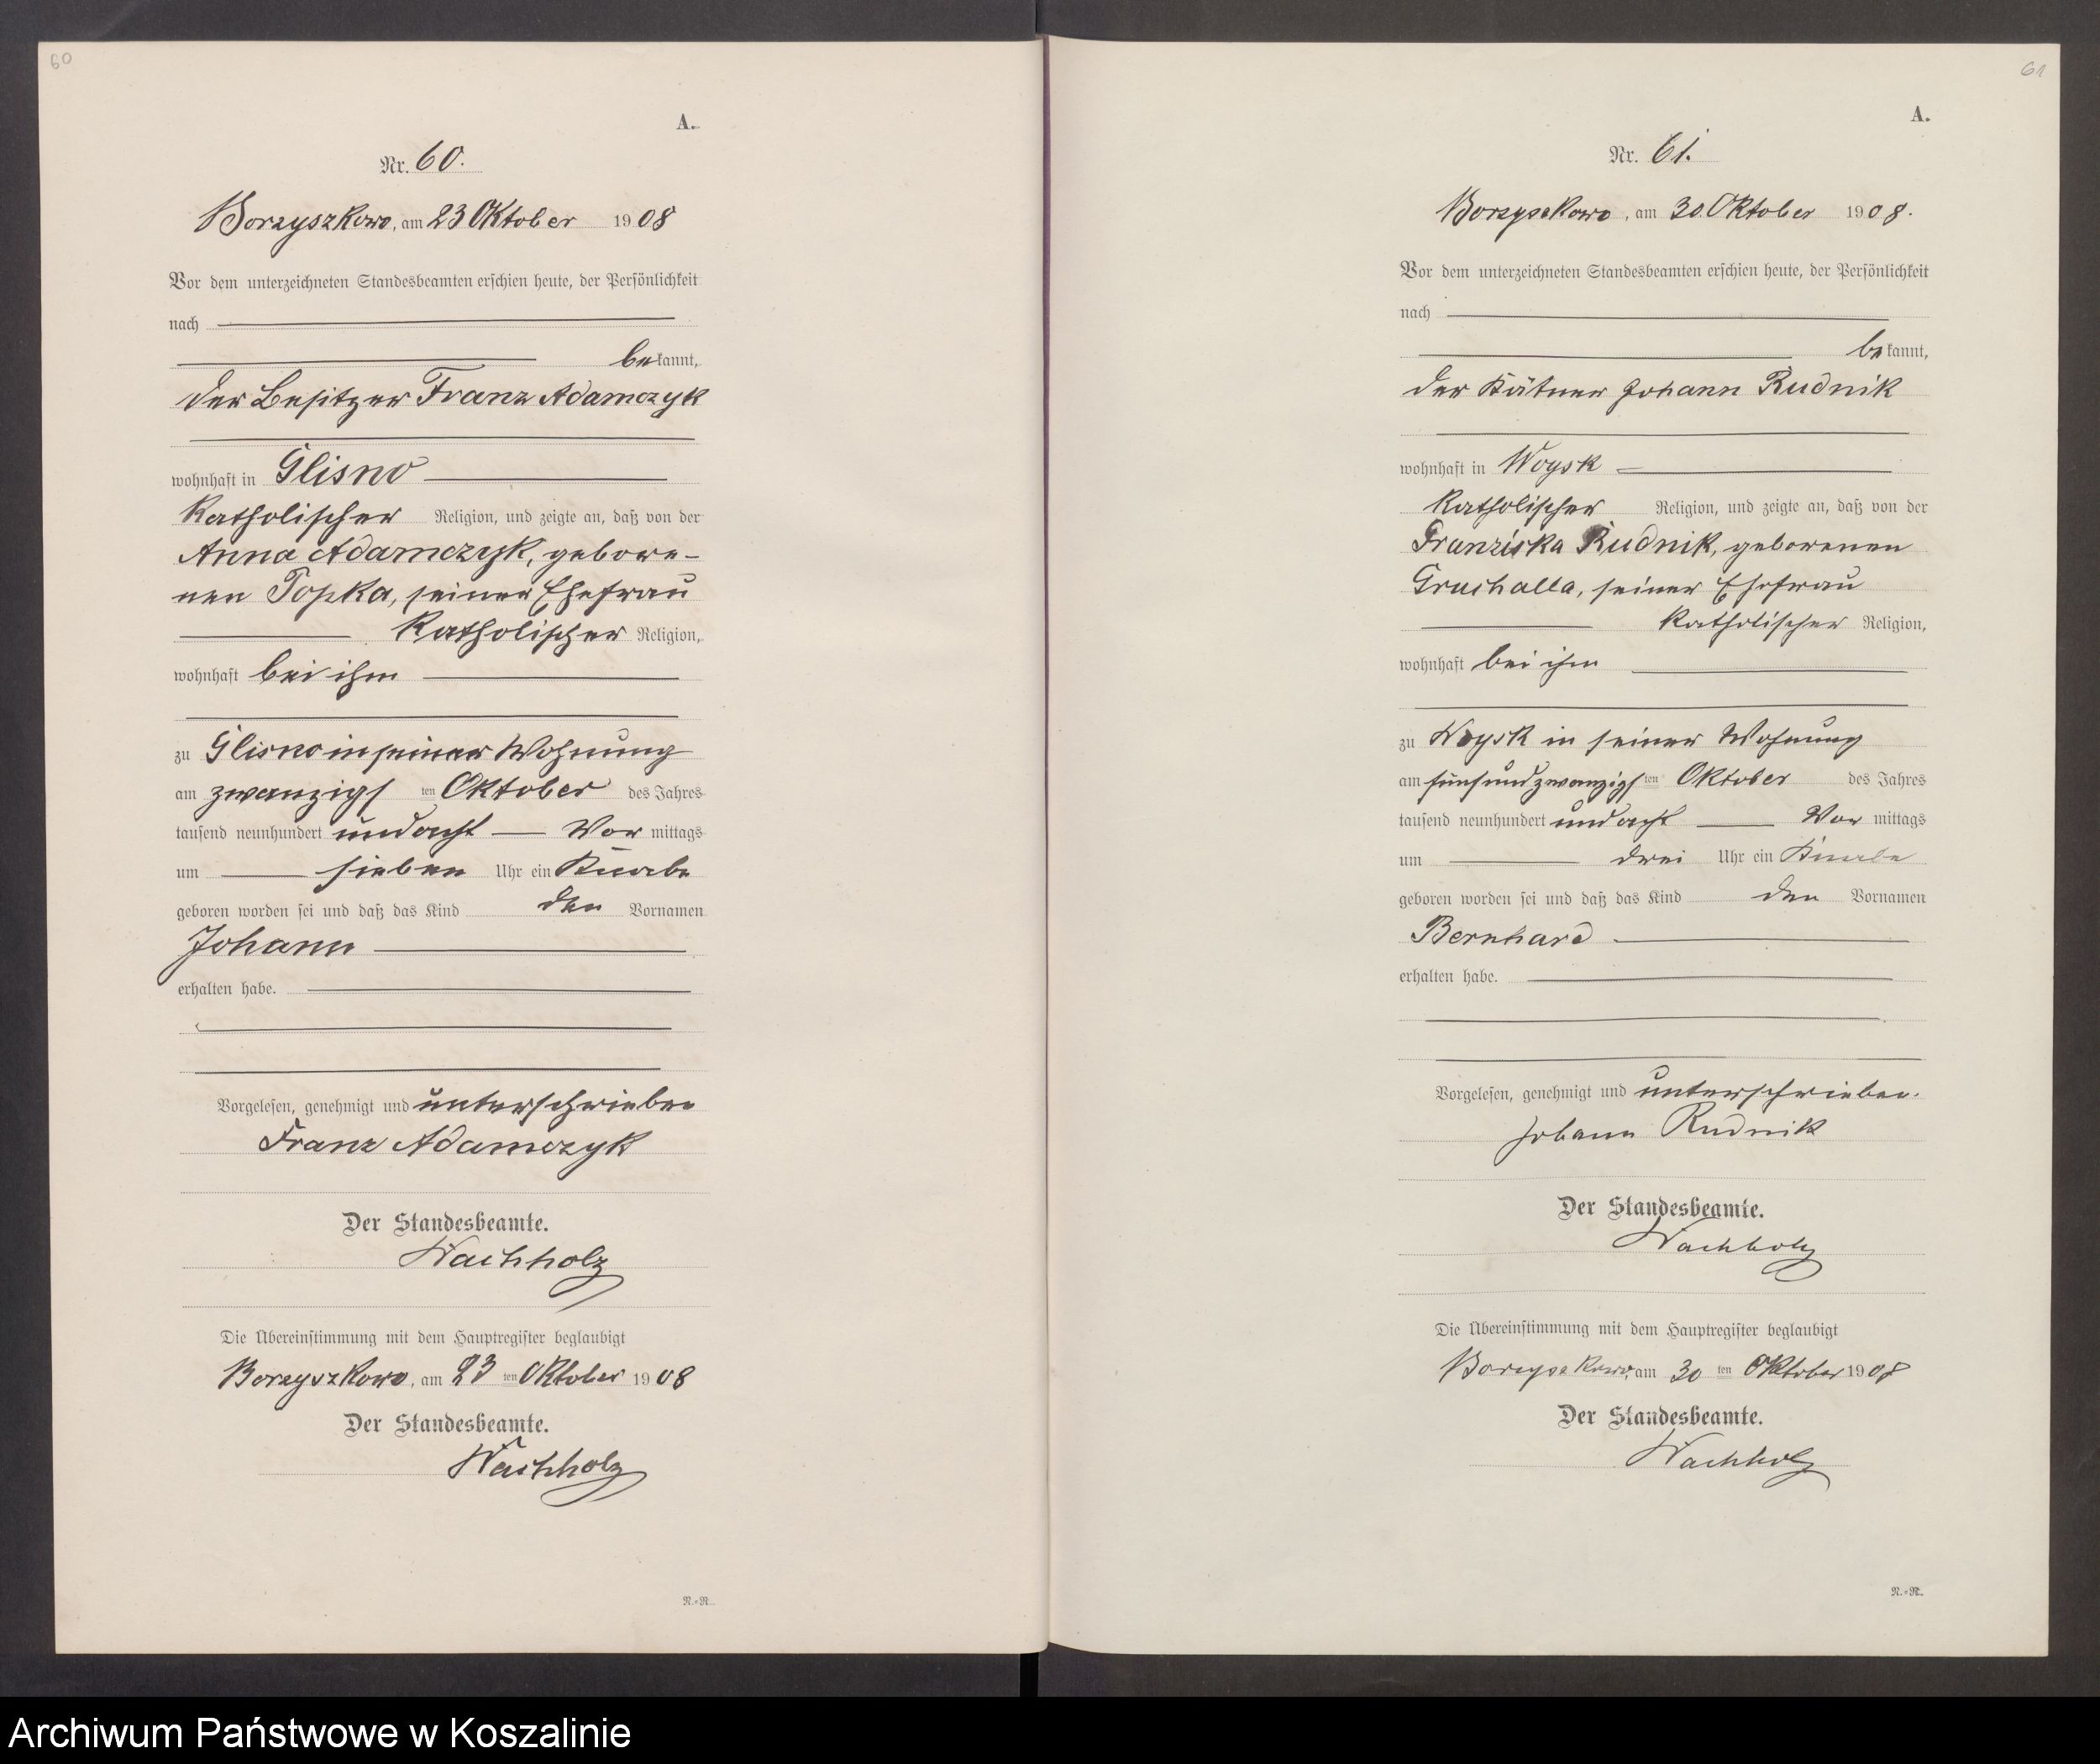 60
A.
Nr. 60.
Borzyszkowo, am 23 Oktober 1908
Vor dem unterzeichneten Standesbeamten erschien heute, der Persönlichkeit
nach
bekannt,
der Besitzer Franz Adamczyk
wohnhaft in Glisno
katholischer Religion, und zeigte an, daß von der
Anna Adamczyk, gebore-
nen Topka, seiner Ehefrau
katholischer Religion,
wohnhaft bei ihm
zu Glisno in seiner Wohnung
am zwanzigsten Oktober des Jahres
tausend neunhundert und acht Vormittags
um sieben Uhr ein Knabe
geboren worden sei und daß das Kind den Vornamen
Johann
erhalten habe.
Vorgelesen, genehmigt und unterschrieben
Franz Adamczyk
Der Standesbeamte.
Wachholz
Die Übereinstimmung mit dem Hauptregister beglaubigt
Borzyszkowo, am 23 ten Oktober 1908
Der Standesbeamte.
Wachholz
N.=N.
61
A.
Nr. 61.
Borzyszkowo, am 30 Oktober 1908.
Vor dem unterzeichneten Standesbeamten erschien heute, der Persönlichkeit
nach
bekannt,
der Kätner Johann Rudnik
wohnhaft in Woysk
katholischer Religion, und zeigte an, daß von der
Franziska Rudnik, geborenen
Gruchalla, seiner Ehefrau
katholischer Religion,
wohnhaft bei ihm
zu Woysk in seiner Wohnung
am fünfundzwanzigsten Oktober des Jahres
tausend neunhundert und acht Vormittags
um drei Uhr ein Knabe
geboren worden sei und daß das Kind den Vornamen
Bernhard
erhalten habe.
Vorgelesen, genehmigt und unterschrieben.
Johann Rudnik
Der Standesbeamte.
Wachholz
Die Übereinstimmung mit dem Hauptregister beglaubigt
Borzyszkowo, am 30 ten Oktober 1908
Der Standesbeamte.
Wachholz
N.=N.
Archiwum Państwowe w Koszalinie